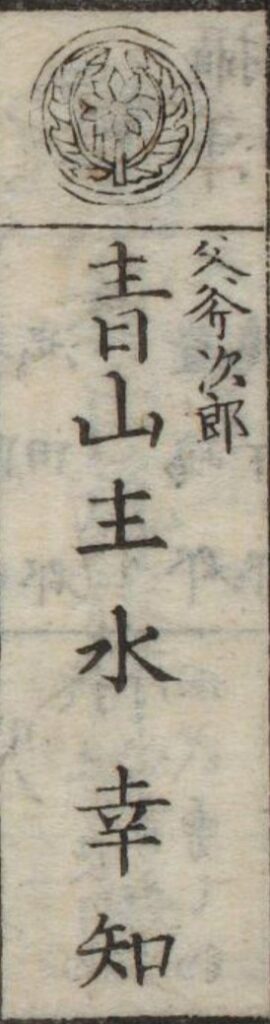 父斧次郎
青山主水幸知